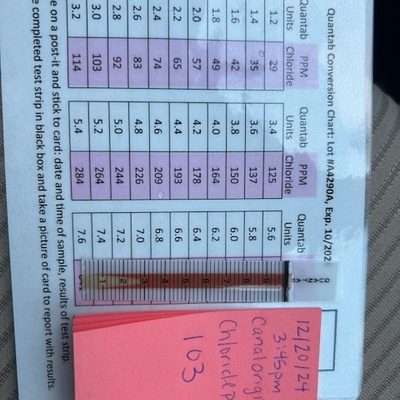 Quantab Conversion Chart: Lot #A4290A, Exp. 10/202
Quantab PPM Quantab PPM Quantab
Units Chloride Units Chloride Units
1.2 29 3.4 125 5.6
1.4 35 3.6 137 5.8
1.6 42 3.8 150 6.0
1.8 49 4.0 164 6.2
2.0 57 4.2 178 6.4
2.2 65 4.4 193 6.6
2.4 74 4.6 209 6.8
2.6 83 4.8 226 7.0
2.8 92 5.0 244 7.2
3.0 103 5.2 264 7.4
3.2 114 5.4 284 7.6
on a post-it and stick to card: date and time of sample, results of test strip.
completed test strip in black box and take a picture of card to report with results.
QUANTAB
9
8
7
6
5
4
3
2
1
12/20/24
3:45pm
Canal origi
Chloride p
103